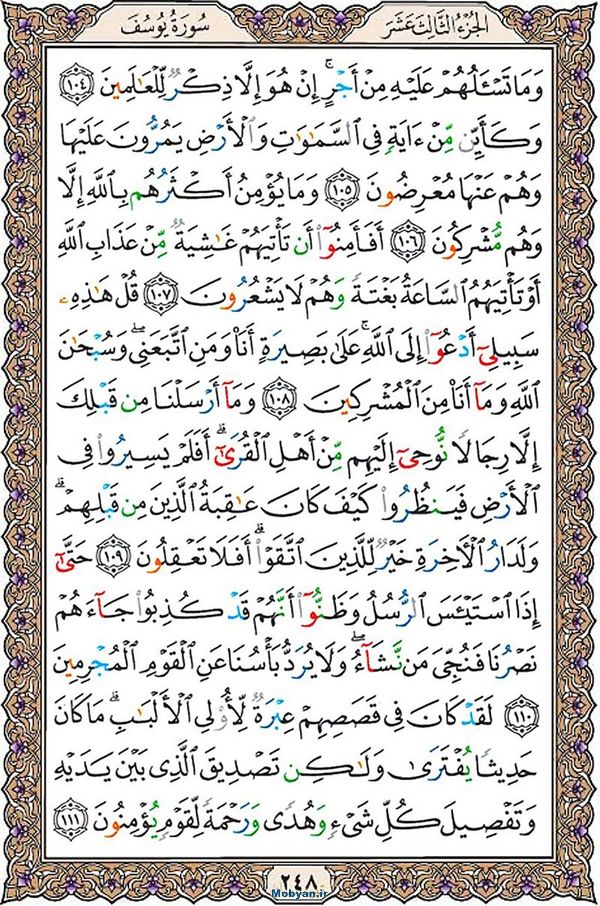 الجزء الثالث عشر سورة يوسف
وَمَا تَسْـَٔلُهُمْ عَلَيْهِ مِنْ أَجْرٍ ۚ إِنْ هُوَ إِلَّا ذِكْرٌ لِّلْعَـٰلَمِينَ ١٠٤
وَكَأَيِّن مِّنْ ءَايَةٍ فِى ٱلسَّمَـٰوَٰتِ وَٱلْأَرْضِ يَمُرُّونَ عَلَيْهَا
وَهُمْ عَنْهَا مُعْرِضُونَ ١٠٥ وَمَا يُؤْمِنُ أَكْثَرُهُم بِٱللَّهِ إِلَّا
وَهُم مُّشْرِكُونَ ١٠٦ أَفَأَمِنُوٓا۟ أَن تَأْتِيَهُمْ غَـٰشِيَةٌ مِّنْ عَذَابِ ٱللَّهِ
أَوْ تَأْتِيَهُمُ ٱلسَّاعَةُ بَغْتَةً وَهُمْ لَا يَشْعُرُونَ ١٠٧ قُلْ هَـٰذِهِۦ
سَبِيلِىٓ أَدْعُوٓا۟ إِلَى ٱللَّهِ ۚ عَلَىٰ بَصِيرَةٍ أَنَا۠ وَمَنِ ٱتَّبَعَنِى ۖ وَسُبْحَـٰنَ
ٱللَّهِ وَمَآ أَنَا۠ مِنَ ٱلْمُشْرِكِينَ ١٠٨ وَمَآ أَرْسَلْنَا مِن قَبْلِكَ
إِلَّا رِجَالًا نُّوحِىٓ إِلَيْهِم مِّنْ أَهْلِ ٱلْقُرَىٰٓ ۗ أَفَلَمْ يَسِيرُوا۟ فِى
ٱلْأَرْضِ فَيَنظُرُوا۟ كَيْفَ كَانَ عَـٰقِبَةُ ٱلَّذِينَ مِن قَبْلِهِمْ ۗ
وَلَدَارُ ٱلْـَٔاخِرَةِ خَيْرٌ لِّلَّذِينَ ٱتَّقَوْا۟ ۗ أَفَلَا تَعْقِلُونَ ١٠٩ حَتَّىٰٓ
إِذَا ٱسْتَيْـَٔسَ ٱلرُّسُلُ وَظَنُّوٓا۟ أَنَّهُمْ قَدْ كُذِبُوا۟ جَآءَهُمْ
نَصْرُنَا فَنُجِّىَ مَن نَّشَآءُ ۖ وَلَا يُرَدُّ بَأْسُنَا عَنِ ٱلْقَوْمِ ٱلْمُجْرِمِينَ
١١٠ لَقَدْ كَانَ فِى قَصَصِهِمْ عِبْرَةٌ لِّأُو۟لِى ٱلْأَلْبَـٰبِ ۗ مَا كَانَ
حَدِيثًا يُفْتَرَىٰ وَلَـٰكِن تَصْدِيقَ ٱلَّذِى بَيْنَ يَدَيْهِ
وَتَفْصِيلَ كُلِّ شَىْءٍ وَهُدًى وَرَحْمَةً لِّقَوْمٍ يُؤْمِنُونَ ١١١
٢٤٨
Mobyan.ir